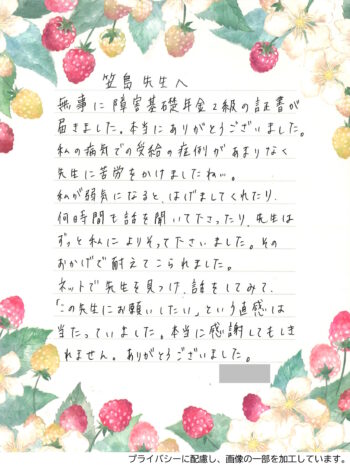 笠島先生へ
無事に障害基礎年金2級の証書が
届きました。本当にありがとうございました。
私の病気での受給の症例があまりなく
先生に苦労をかけましたね。
私が弱気になると、はげましてくれたり、
何時間も話を聞いて下さったり、先生は
ずっと私によりそって下さいました。その
おかげで耐えてこられました。
ネットで先生を見つけ、話をしてみて、
「この先生にお願いしたい」という直感は
当たっていました。本当に感謝してもしき
れません。ありがとうございました。
プライバシーに配慮し、画像の一部を加工しています。